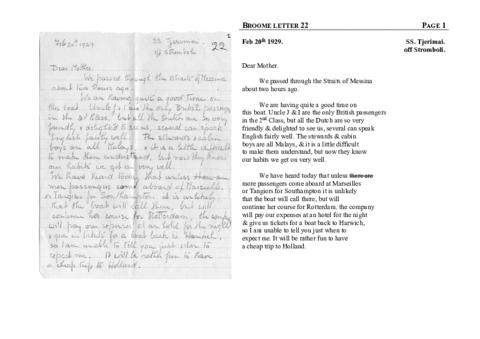 Feb 20th 1929.
SS. Tjerimai.
off Stromboli.
22
Dear Mother.
We passed through the Straits of Messina
about two hours ago.
We are having quite a good time on
this boat. Uncle J & I are the only British passengers
in the 2nd Class, but all the Dutch are so very
friendly & delighted to see us, several can speak
English fairly well. The stewards & cabin
boys are all Malays, & it is a little difficult
to make them understand, but now they know
our habits we get on very well.
We have heard today that unless there are
more passengers come aboard at Marseilles
or Tangiers for Southampton it is unlikely
that the boat will call there, but will
continue her course for Rotterdam, the company
will pay our expenses at an hotel for the night
& give us tickets for a boat back to Harwich,
so I am unable to tell you just when to
expect me. It will be rather fun to have
a cheap trip to Holland.
BROOME LETTER 22
PAGE 1
Feb 20th 1929.
SS. Tjerimai.
off Stromboli.
Dear Mother.
We passed through the Straits of Messina
about two hours ago.
We are having quite a good time on
this boat. Uncle J & I are the only British passengers
in the 2nd Class, but all the Dutch are so very
friendly & delighted to see us, several can speak
English fairly well. The stewards & cabin
boys are all Malays, & it is a little difficult
to make them understand, but now they know
our habits we get on very well.
We have heard today that unless there are
more passengers come aboard at Marseilles
or Tangiers for Southampton it is unlikely
that the boat will call there, but will
continue her course for Rotterdam, the company
will pay our expenses at an hotel for the night
& give us tickets for a boat back to Harwich,
so I am unable to tell you just when to
expect me. It will be rather fun to have
a cheap trip to Holland.